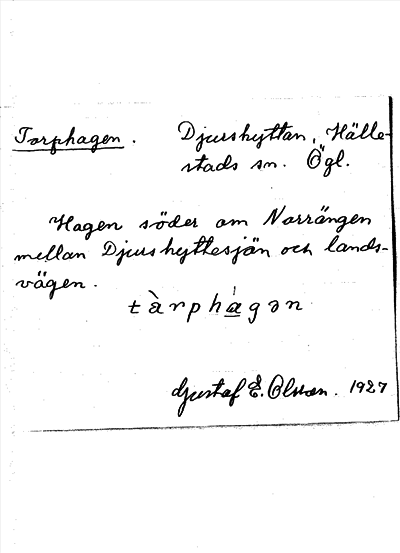 Torphagen. Djurshyttan, Hälle-
stads sn. Ögl.
Hagen söder om Norrängen
mellan Djurshyttesjön och lands-
vägen.
tàrphágən
Gustaf E. Olsson. 1927